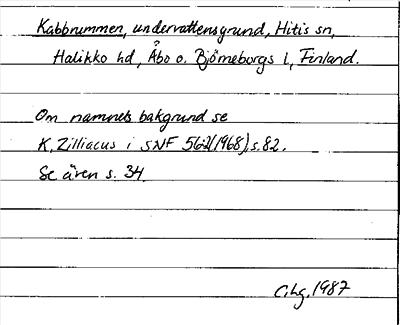 Kabbrummen, undervattensgrund, Hitis sn,
Halikko hd, Åbo o. Björneborgs l, Finland.
Om namnets bakgrund se
K. Zilliacus i SNF 56 (1968), s. 82.
Se även s. 34.
C.hg. 1987